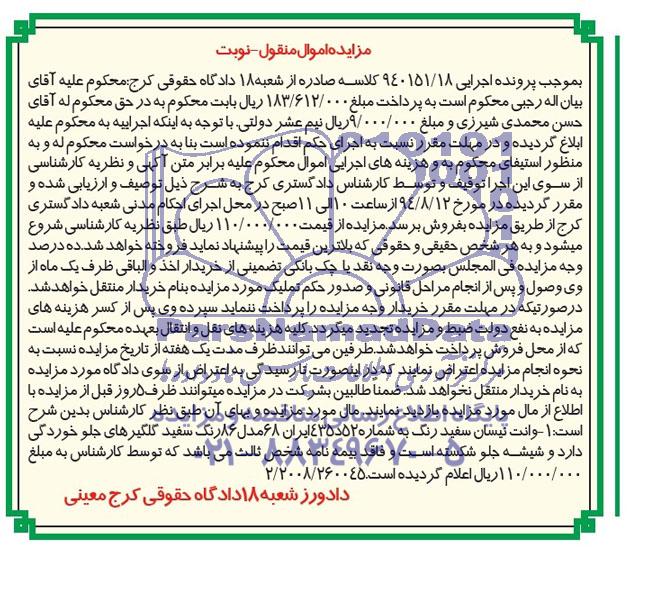 مزایده اموال منقول-نوبت
بموجب پرونده اجرایی ۹۴۰۱۵۱/۱۸ کلاسه صادره از شعبه۱۸ دادگاه حقوقی کرج:محکوم علیه آقای
بیان اله رجبی محکوم است به پرداخت مبلغ۱۸۳/۶۱۲/۰۰۰ ریال بابت محکوم به در حق محکوم له آقای
حسن محمدی شیرزی و مبلغ ۹/۰۰۰/۰۰۰ریال نیم عشر دولتی. با توجه به اینکه اجراییه به محکوم علیه
ابلاغ گردیده و در مهلت مقرر نسبت به اجرای حکم اقدام ننموده است بنا به درخواست محکوم له و به
منظور استیفای محکوم به و هزینه های اجرایی اموال محکوم علیه برابر متن آگهی و نظریه کارشناسی
از سوی این اجرا توقیف و توسط کارشناس دادگستری کرج به شرح ذیل توصیف و ارزیابی شده و
مقرر گردیده در مورخ ۹۴/۸/۱۲ از ساعت ۱۰الی ۱۱صبح در محل اجرای احکام مدنی شعبه دادگستری
کرج از طریق مزایده بفروش برسد.مزایده از قیمت۱۱۰/۰۰۰/۰۰۰ ریال طبق نظریه کارشناسی شروع
میشود و به هر شخص حقیقی و حقوقی که بالاترین قیمت را پیشنهاد نماید فروخته خواهد شد.ده درصد
وجه مزایده فی المجلس بصورت وجه نقد یا چک بانکی تضمینی از خریدار اخذ و الباقی ظرف یک ماه از
وی وصول و پس از انجام مراحل قانونی و صدور حکم تملیک مورد مزایده بنام خریدار منتقل خواهدشد.
درصورتیکه در مهلت مقرر خریدار وجه مزایده را پرداخت ننماید سپرده وی پس از کسر هزینه های
مزایده به نفع دولت ضبط و مزایده تجدید میگردد.کلیه هزینه های نقل و انتقال بعهده محکوم علیه است
که از محل فروش پرداخت خواهدشد.طرفین می توانندظرف مدت یک هفته از تاریخ مزایده نسبت به
نحوه انجام مزایده اعتراض نمایند که در اینصورت تا رسیدگی به اعتراض از سوی دادگاه مورد مزایده
به نام خریدار منتقل نخواهد شد.ضمنا طالبین بشرکت در مزایده میتوانند ظرف۵روز قبل از مزایده با
اطلاع از مال مورد مزایده بازدید نمایند.مال مورد مزایده و بهای آن طبق نظر کارشناس بدین شرح
است:۱-وانت نیسان سفید رنگ به شماره۵۲د۴۳۵ایران ۶۸مدل۸۶رنگ سفید گلگیرهای جلو خوردگی
دارد و شیشه جلو شکسته است و فاقد بیمه نامه شخص ثالث می باشد که توسط کارشناس به مبلغ
۱۱۰/۰۰۰/۰۰۰ریال اعلام گردیده است.۲/۲۰۰۸/۲۶۰۰۴۵
دادورز شعبه۱۸دادگاه حقوقی کرج معینی
ParsNamadData
۰۲۱-۸۸۳۴۹۶۷۰-۵